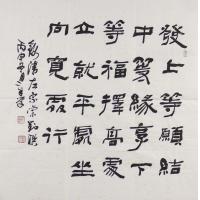 發上等願結
中等緣享下
等福擇高處
立就平處坐
向寬處行
錄清左宗棠對聯
丙申